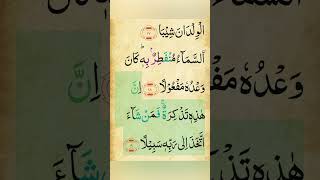 الْوِلْدَانَ شِيْبَا ﴿١٧﴾
اۨلسَّمَآءُ مُنْفَطِرٌۢ بِهٖ ؕ كَانَ
وَعْدُهٗ مَفْعُوْلًا ﴿١٨﴾ اِنَّ
هٰذِهٖ تَذْكِرَةٌ ۚ فَمَنْ شَآءَ
اتَّخَذَ اِلٰى رَبِّهٖ سَبِيْلًا ﴿١٩﴾